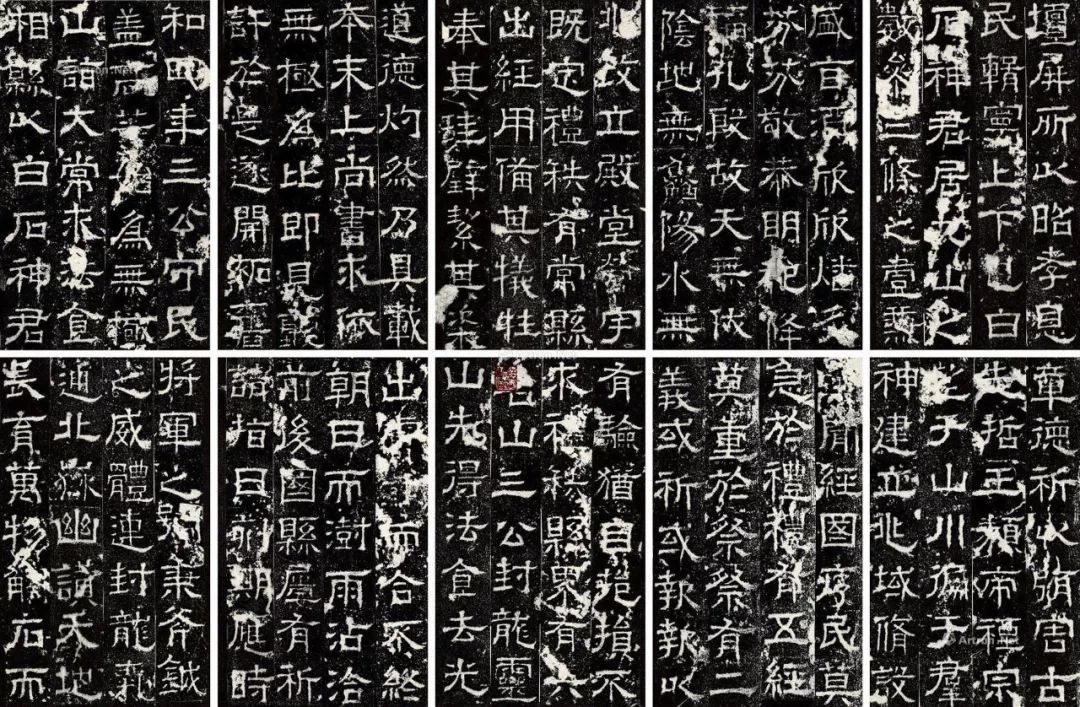 壇屏所以昭孝息
民輯寧上下也白
石神君居九山之
數參三條之壹兼
盛旨酒欣欣燔炙
芬芬敬恭明祀降
福孔殷故天無伏
陰地無鱻陽水無
兆改立殿堂營宇
既定禮秩有常縣
出經用備其犧牲
奉其珪璧絜其粢
道德灼然乃具載
本末上尚書求依
無極為比即見聽
許於是遂開拓舊
和四年三公守民
蓋高等始為無極
山詣大常求法食
相縣以白石神君
章德祈以弭害古
先哲王類帝禋宗
望于山川徧于羣
神建立兆域脩設
蓋聞經國序民莫
急於禮禮有五經
莫重於祭祭有二
義或祈或報報以
有驗猶自挹損不
求禮秩縣界有六
名山三公封龍靈
山先得法食去光
出膚寸而合不終
朝日而澍雨沾洽
前後國縣屢有祈
請指日刻期應時
將軍之號秉斧鉞
之威體連封龍氣
通北嶽幽讚天地
長育萬物觸石而